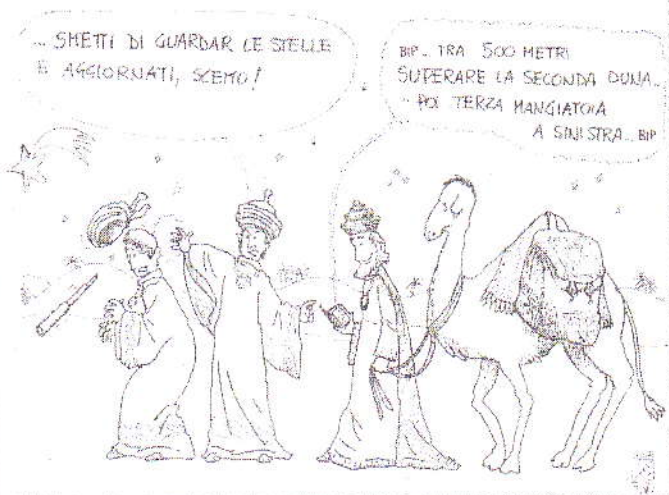 ... SMETTI DI GUARDAR LE STELLE
E AGGIORNATI, SCEMO!
BIP.. TRA 500 METRI
SUPERARE LA SECONDA DUNA..
.. POI TERZA MANGIATOIA
A SINISTRA.. BIP